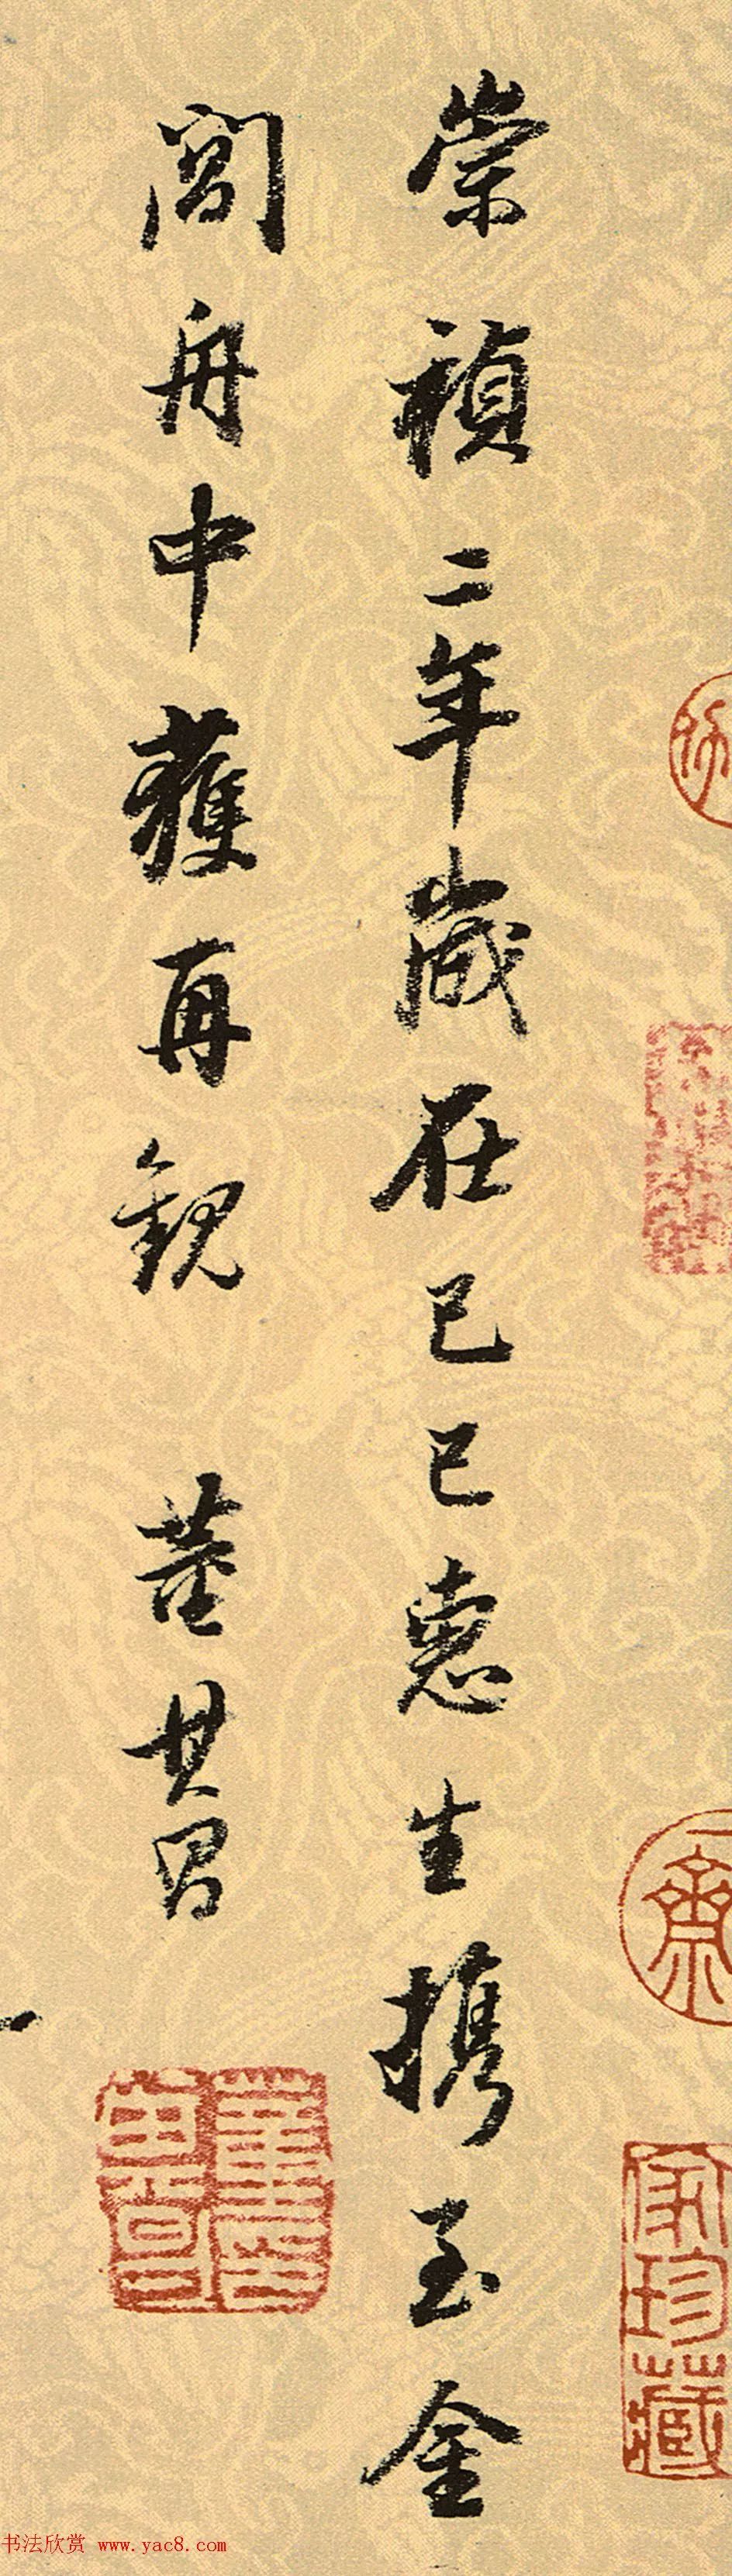 崇禎二年歲在己巳惠生攜至金
閶舟中獲再觀 董其昌
齋
家珍藏
书法欣赏 www.yac8.com